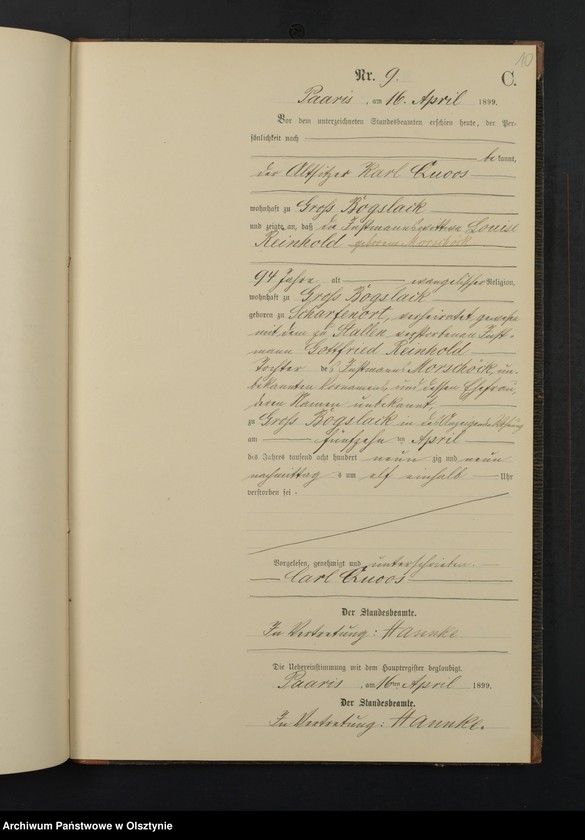 10
Nr. 9.
C.
Paaris, am 16. April 1899.
Vor dem unterzeichneten Standesbeamten erschien heute, der Per-
sönlichkeit nach
bekannt,
der Altsitzer Karl
wohnhaft zu Groß Bögslack
und zeigte an, daß die Instmannswittwe Louise
Reinhold geborene Morschöck
94 Jahre alt evangelischer Religion,
wohnhaft zu Groß Bögslack
geboren zu Scharfenort, verheirathet gewesen
mit dem zu Stallen verstorbenen Inst-
mann Gottfried Reinhold
Tochter des Instmanns Morschöck, un-
bekannten Vornamens, und dessen Ehefrau,
deren Namen unbekannt,
zu Groß Bögslack in des Anzeigenden Wohnung
am fünfzehnten April
des Jahres tausend acht hundert neunzig und neun
nachmittags um elf einhalb Uhr
verstorben sei.
Vorgelesen, genehmigt und unterschrieben
Carl
Der Standesbeamte.
In Vertretung: Hannke
Die Uebereinstimmung mit dem Hauptregister beglaubigt.
Paaris, am 16ten April 1899.
Der Standesbeamte.
In Vertretung: Hannke.
Archiwum Państwowe w Olsztynie